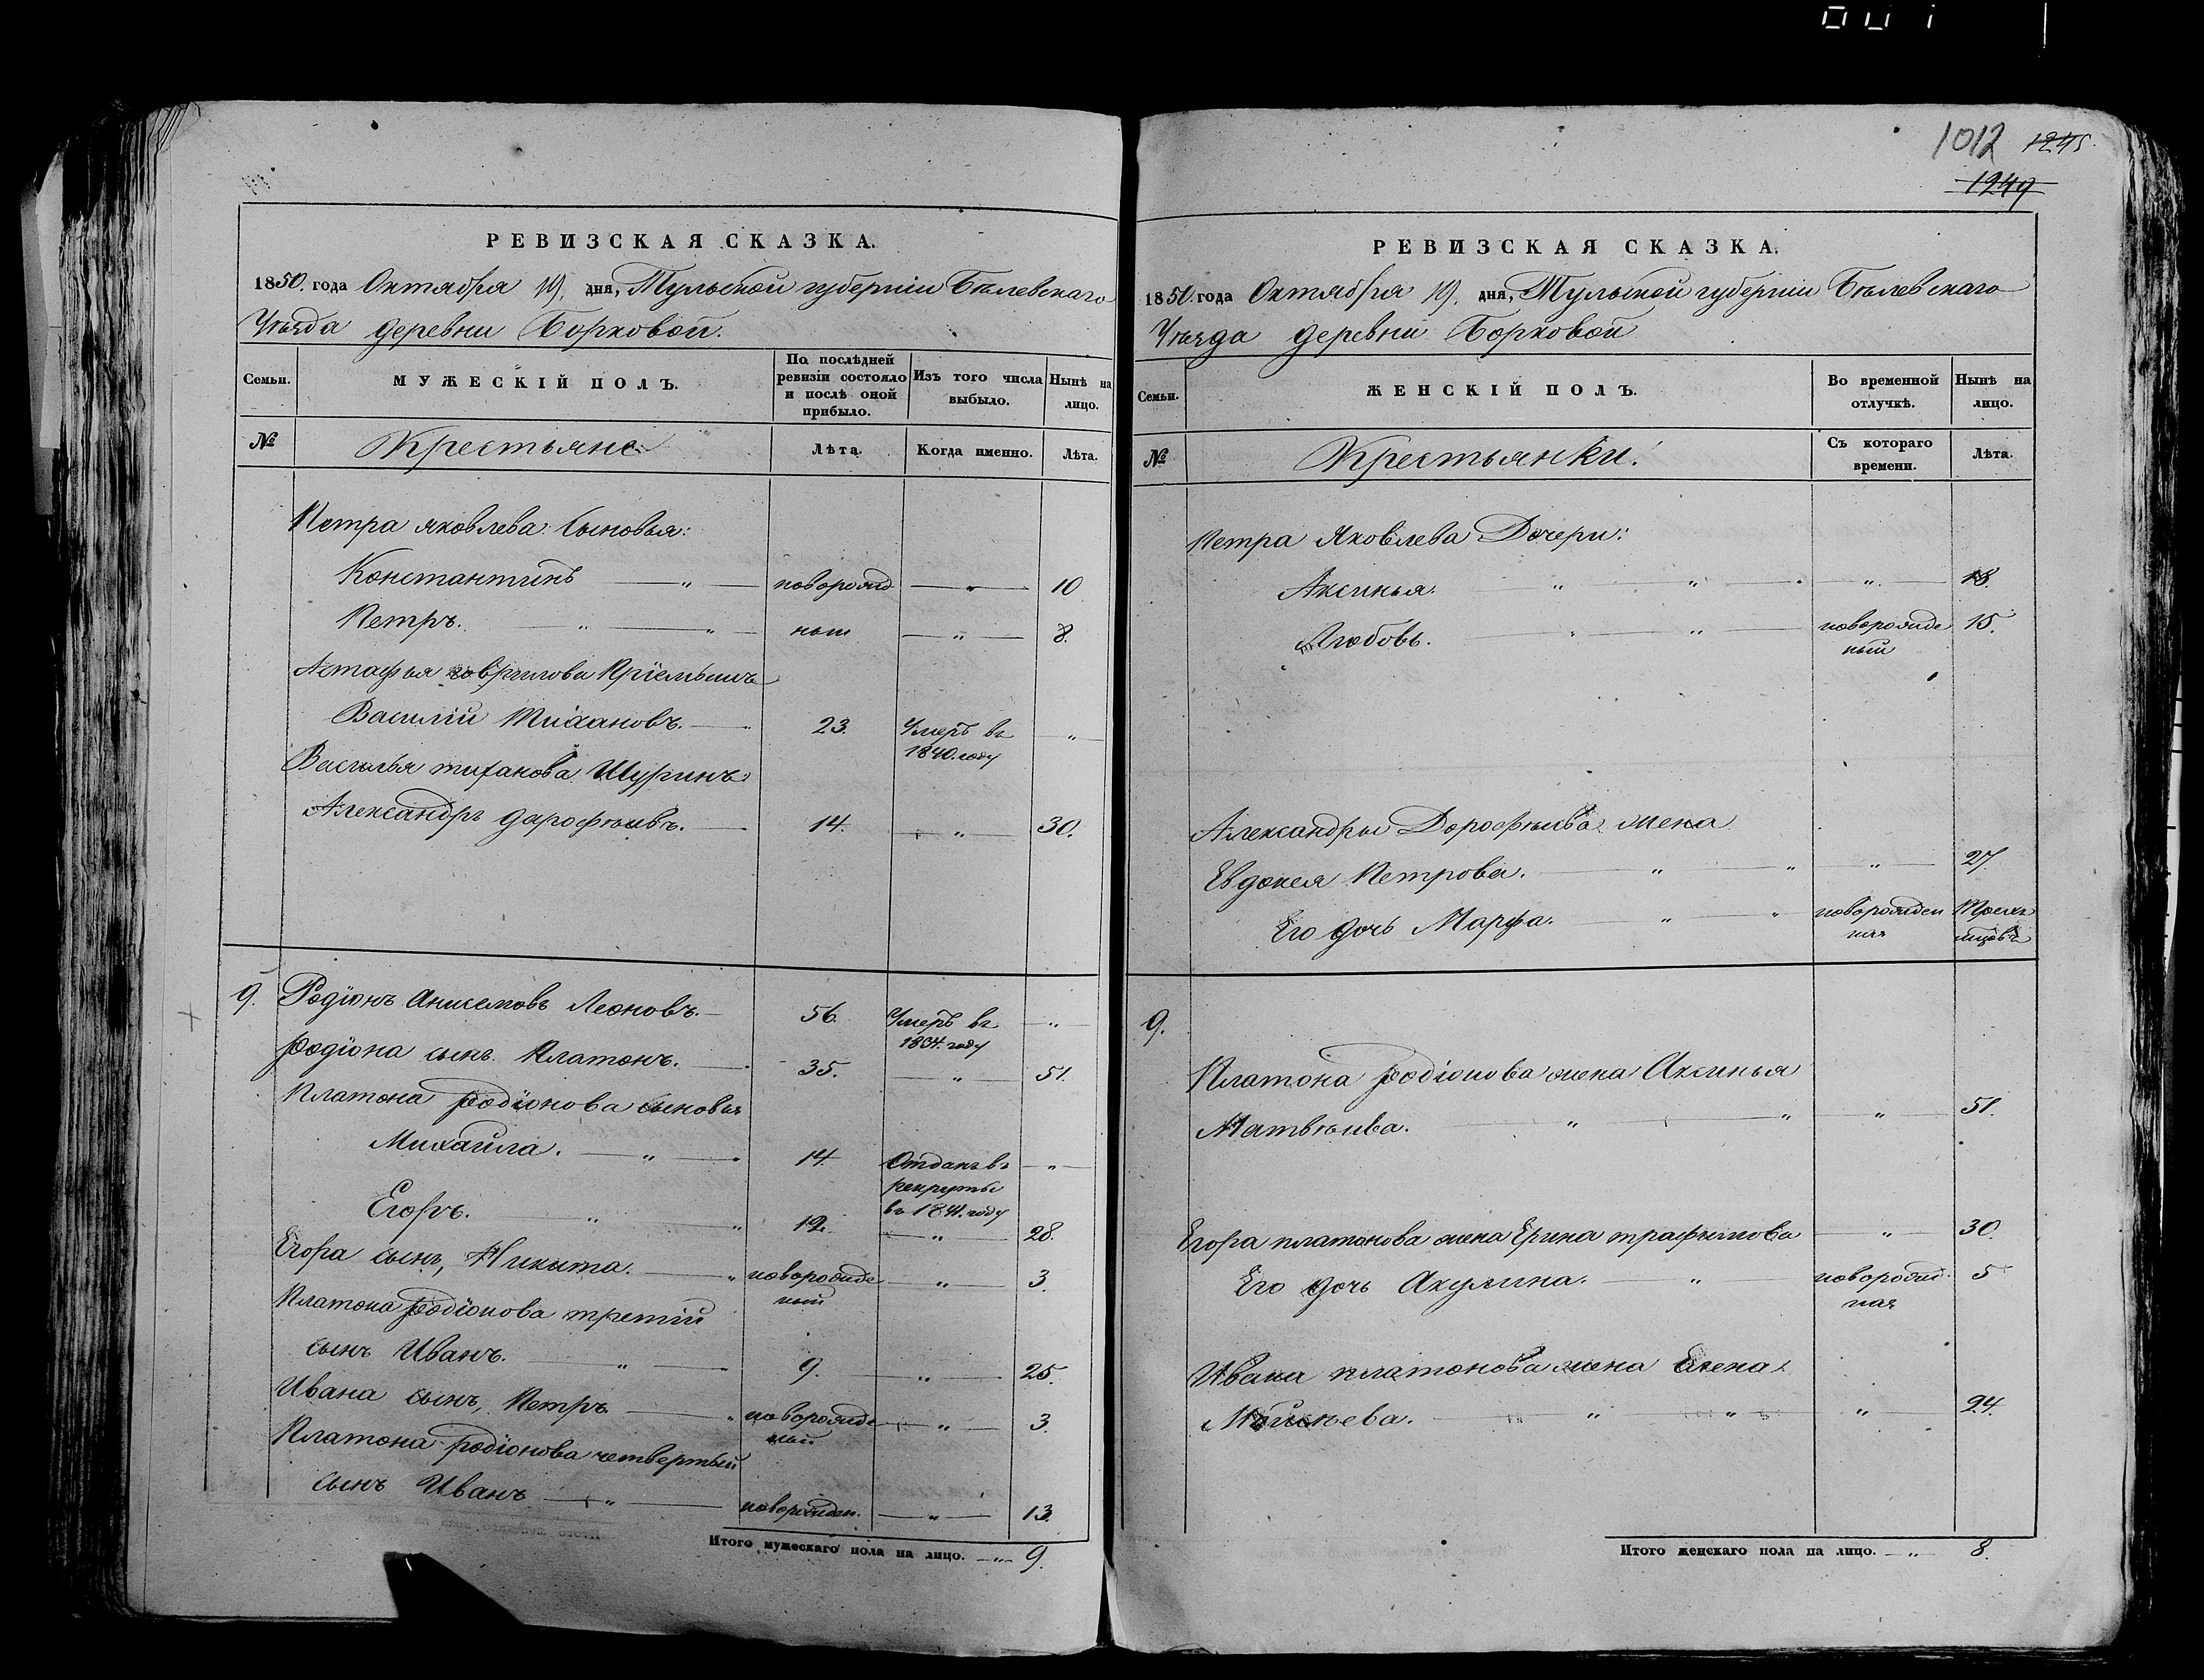 РЕВИЗСКАЯ СКАЗКА.
1850. года Октября 19. дня, Тульской губерніи Бѣлевскаго
Уѣзда деревни Борковой.
Семьи.
МУЖЕСКІЙ ПОЛЪ.
По послѣдней ревизіи состояло и послѣ оной прибыло.
Изъ того числа выбыло.
Нынѣ на лицо.
№
Крестьяне
Лѣта.
Когда именно.
Лѣта.
Петра яковлева Сыновья:
Константинъ — „ — новорожд — „ — 10
Петръ. — „ — „ — ные — „ — 8.
Астафья гаврилова Пріемышъ
Василій Тихановъ. — 23. Умеръ въ — „ —
1840. году
Василья тиханова Шуринъ
Александръ дарофѣивъ. — 14. — „ — 30.
9. Родіонъ Анисимовъ Леоновъ. — 56. Умеръ въ — „ —
1834. году
Родіона сынъ Платонъ. — 35. — „ — 51.
Платона родіонова сыновья
Михайла. — „ — 14. Отданъ въ — „ —
рекруты
въ 1841. году
Егоръ. „ — „ 12. — „ — 28.
Егора сынъ, Никита. — „ новорожде — „ — 3.
ный
Платона родіонова третій
сынъ Иванъ. — „ — 9. — „ — 25.
Ивана сынъ, Петръ — „ новорожде — „ — 3.
ный
Платона родіонова четвертый
сынъ Иванъ — „ — новорожден. — „ — 13.
Итого мужескаго пола на лицо. — „ — 9.
1012 1245.
1249
РЕВИЗСКАЯ СКАЗКА.
1850. года Октября 19. дня, Тульской губерніи Бѣлевскаго
Уѣзда деревни Борковой
Семьи.
ЖЕНСКІЙ ПОЛЪ.
Во временной отлучкѣ.
Нынѣ на лицо.
№
Крестьянки.
Съ котораго времени.
Лѣта.
Петра Яковлева Дочери:
Аксинья. „ — „ — „ — 18.
Любовь. „ — „ — новорожде 15.
ный
Александры Дорофѣива жена
Евдокея Петрова. — „ — „ — „ — 27.
Его дочь Марфа. — „ — „ новорожден Трехъ
ная
9.
Платона родіонова жена Аксинья
Матвѣива. — „ — „ — „ — 51.
Егора платонова жена Ерина трафимова — „ — 30.
Его дочь Акулина. — „ новорожд. 5
ная
Ивана платонова жена Елена
„ — „ — „ — 24.
Итого женскаго пола на лицо. — „ — 8.